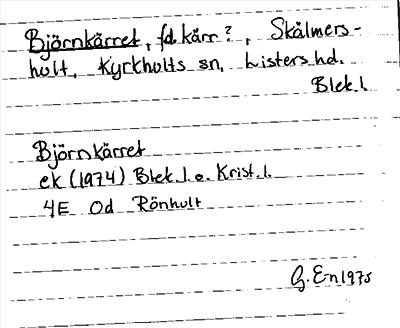 Björnkärret, fd. kärr?, Skälmers-
hult, Kyrkhults sn, Listers hd.
Blek. l.
Björnkärret
ek (1974) Blek l. o. Krist. l.
4E Od Rönhult
G. E-n 1975